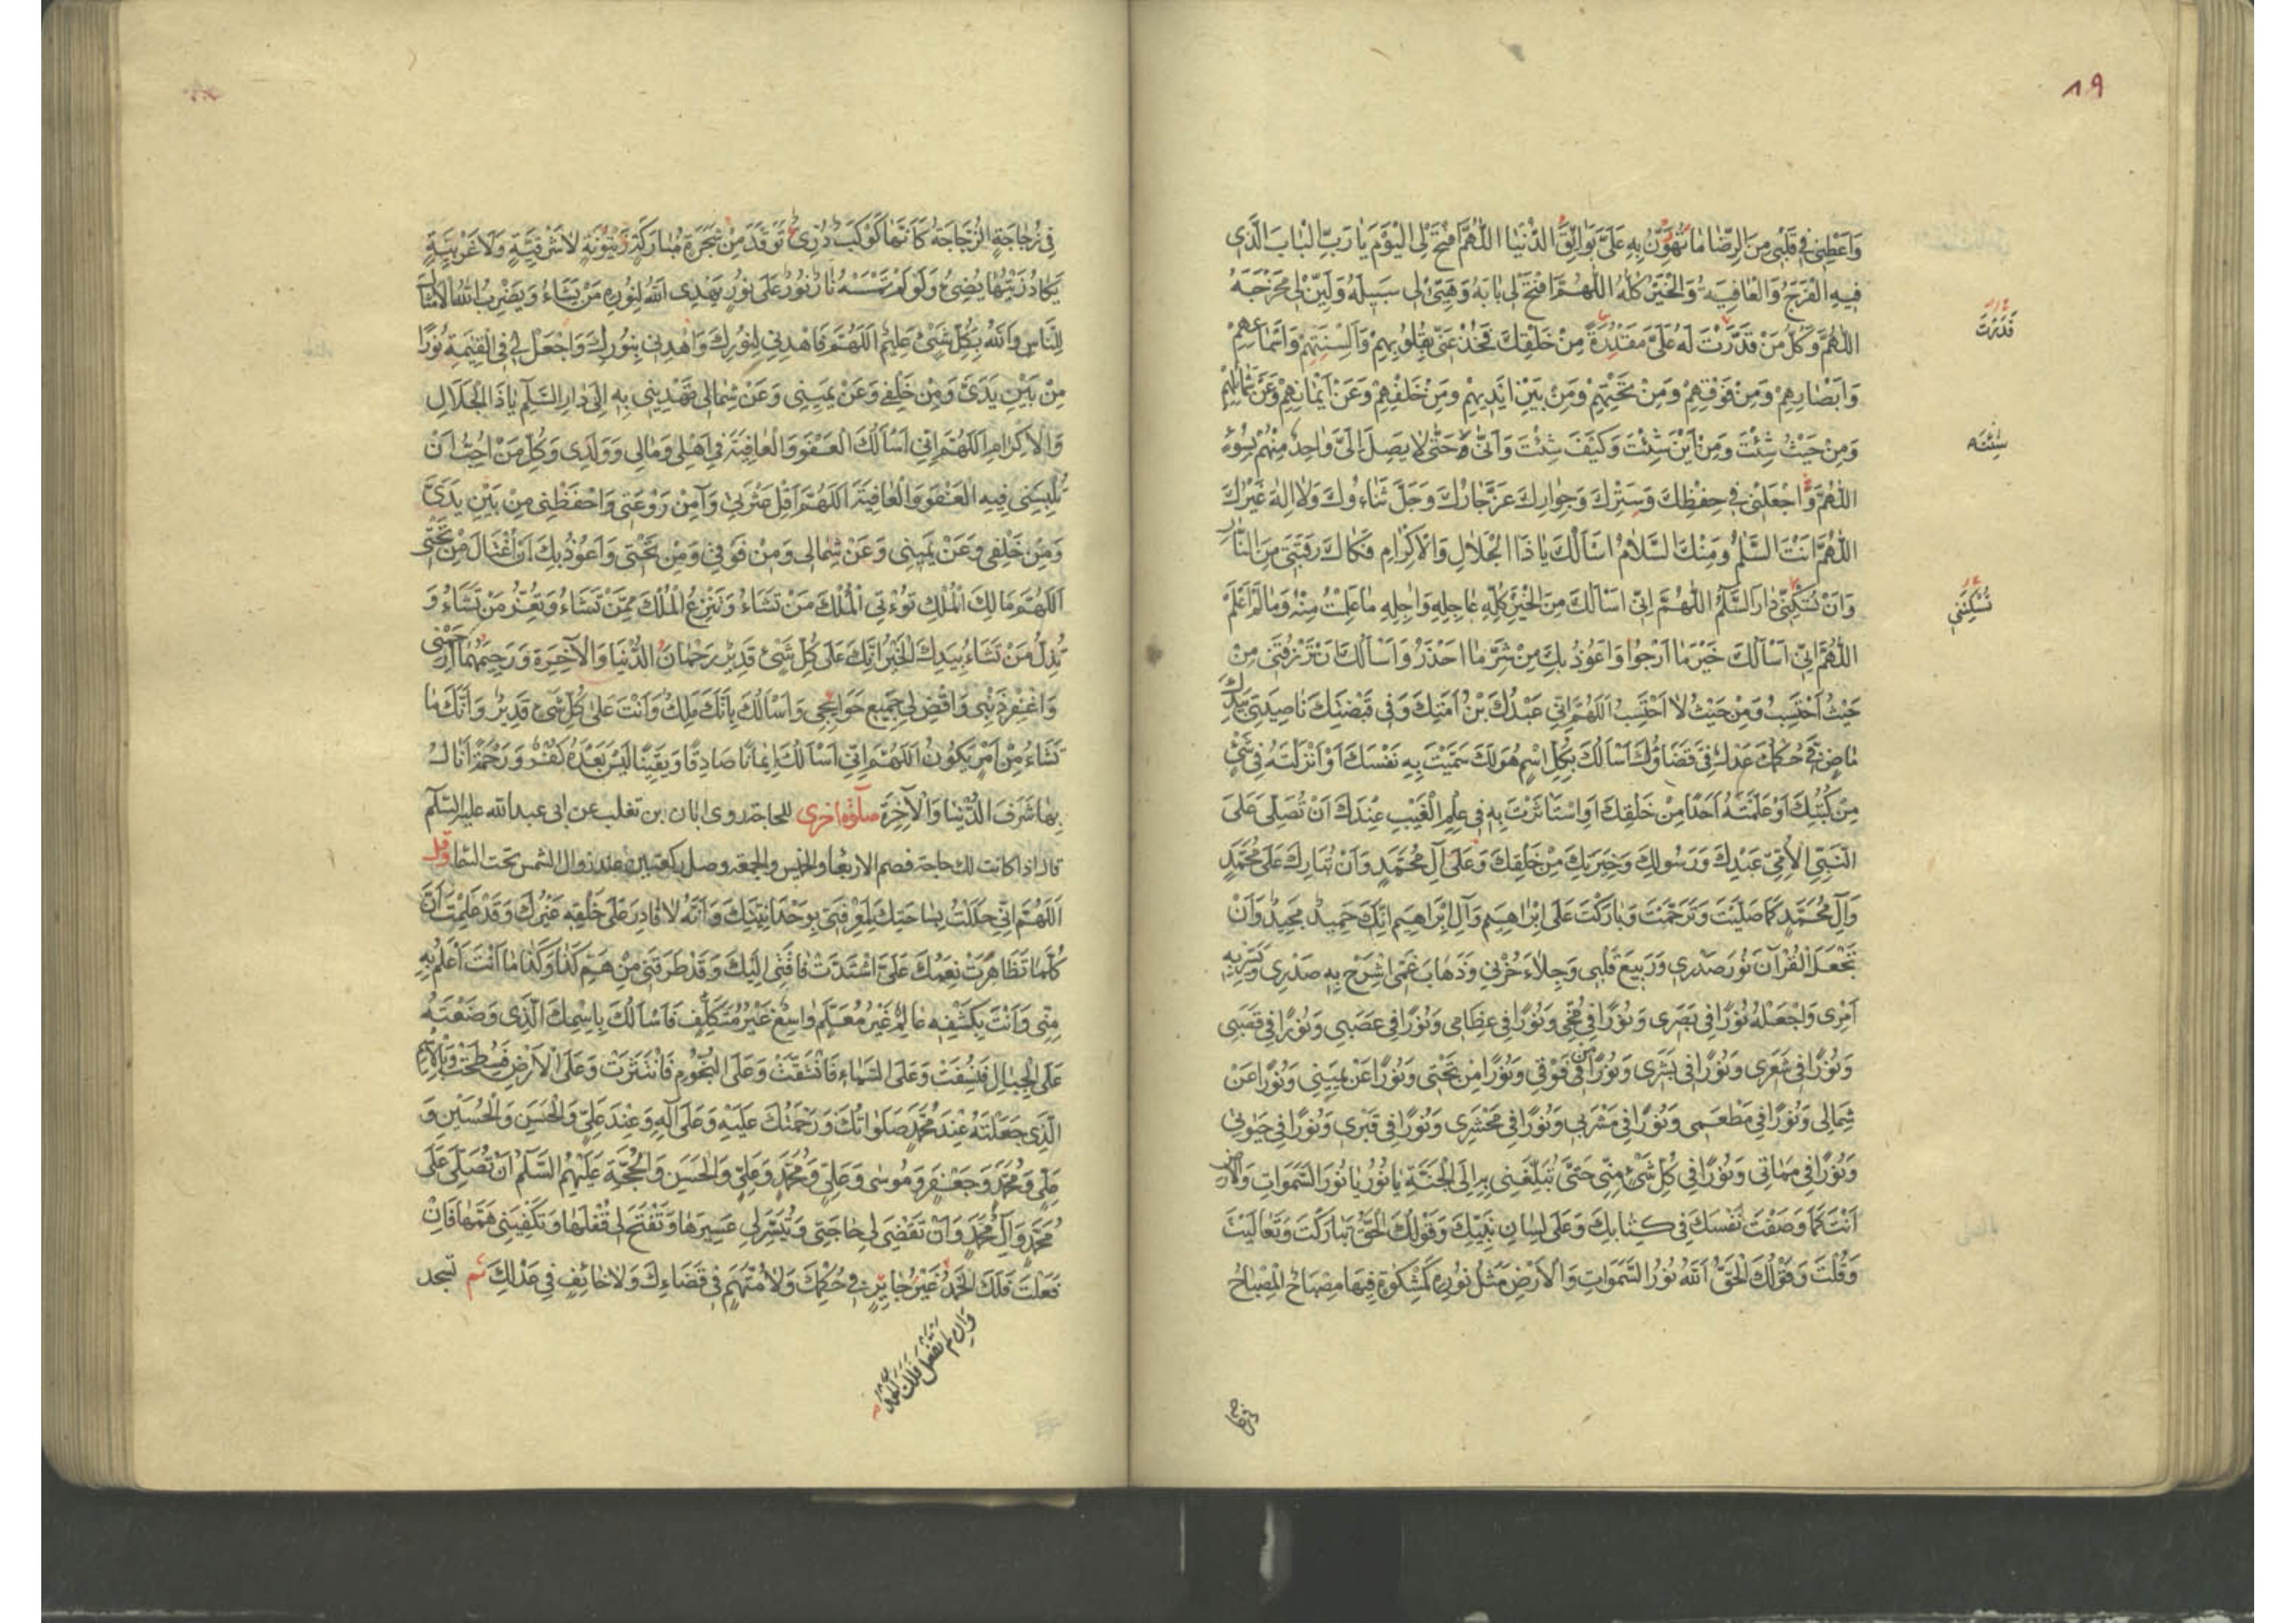 ١٩
وَاَعْطِنِي فِي قَلْبِي مِنَ الرِّضَا مَا تُهَوِّنُ بِهِ عَلَيَّ بَوَائِقَ الدُّنْيَا اَللّٰهُمَّ افْتَحْ لِيَ الْيَوْمَ يَا رَبِّ الْبَابَ الَّذِي
فِيهِ الْفَرَجُ وَالْعَافِيَةُ وَالْخَيْرُ كُلُّهُ اَللّٰهُمَّ افْتَحْ لِي بَابَهُ وَهَيِّئْ لِي سَبِيلَهُ وَلَيِّنْ لِي مَخْرَجَهُ
اَللّٰهُمَّ وَكُلُّ مَنْ قَدَّرْتَ لَهُ عَلَيَّ مَقْدُرَةً مِنْ خَلْقِكَ فَخُذْ عَنِّي بِقُلُوبِهِمْ وَاَلْسِنَتِهِمْ وَاَسْمَاعِهِمْ
قَدَرْتَ
وَاَبْصَارِهِمْ وَمِنْ فَوْقِهِمْ وَمِنْ تَحْتِهِمْ وَمِنْ بَيْنِ اَيْدِيهِمْ وَمِنْ خَلْفِهِمْ وَعَنْ اَيْمَانِهِمْ وَعَنْ شَمَائِلِهِمْ
وَمِنْ حَيْثُ شِئْتَ وَمِنْ اَيْنَ شِئْتَ وَكَيْفَ شِئْتَ وَاَنّٰى حَتّٰى لَا يَصِلَ اِلَيَّ وَاحِدٌ مِنْهُمْ بِسُوءٍ
شِئْتَه
اَللّٰهُمَّ وَاجْعَلْنِي فِي حِفْظِكَ وَسِتْرِكَ وَجِوَارِكَ عَزَّ جَارُكَ وَجَلَّ ثَنَاءُوكَ وَلَا اِلٰهَ غَيْرُكَ
اَللّٰهُمَّ اَنْتَ السَّلٰمُ وَمِنْكَ السَّلَامُ اَسْاَلُكَ يَا ذَا الْجَلَالِ وَالْاِكْرَامِ فَكَاكَ رَقَبَتِي مِنَ النَّارِ
وَاَنْ تُسْكِنِّي دَارَ السَّلٰمِ اَللّٰهُمَّ اِنِّي اَسْاَلُكَ مِنَ الْخَيْرِ كُلِّهِ عَاجِلِهِ وَاٰجِلِهِ مَا عَلِمْتُ مِنْهُ وَمَا لَمْ اَعْلَمْ
تُسْكِنَنِي
اَللّٰهُمَّ اِنِّي اَسْاَلُكَ خَيْرَ مَا اَرْجُوا وَاَعُوذُ بِكَ مِنْ شَرِّ مَا اَحْذَرُ وَاَسْاَلُكَ اَنْ تَرْزُقَنِي مِنْ
حَيْثُ اَحْتَسِبُ وَمِنْ حَيْثُ لَا اَحْتَسِبُ اَللّٰهُمَّ اِنِّي عَبْدُكَ بْنُ اَمَتِكَ وَفِي قَبْضَتِكَ نَاصِيَتِي بِيَدِكَ
مَاضٍ فِيَّ حُكْمُكَ عَدْلٌ فِيَّ قَضَاؤُكَ اَسْاَلُكَ بِكُلِّ اسْمٍ هُوَ لَكَ سَمَّيْتَ بِهِ نَفْسَكَ اَوْ اَنْزَلْتَهُ فِي شَيْءٍ
مِنْ كُتُبِكَ اَوْ عَلَّمْتَهُ اَحَدًا مِنْ خَلْقِكَ اَوِ اسْتَاْثَرْتَ بِهِ فِي عِلْمِ الْغَيْبِ عِنْدَكَ اَنْ تُصَلِّيَ عَلَى
النَّبِيِّ الْاُمِّيِّ عَبْدِكَ وَرَسُولِكَ وَخِيَرَتِكَ مِنْ خَلْقِكَ وَعَلٰى آلِ مُحَمَّدٍ وَاَنْ تُبَارِكَ عَلٰى مُحَمَّدٍ
وَآلِ مُحَمَّدٍ كَمَا صَلَّيْتَ وَتَرَحَّمْتَ وَبَارَكْتَ عَلٰى اِبْرَاهِيمَ وَآلِ اِبْرَاهِيمَ اِنَّكَ حَمِيدٌ مَجِيدٌ وَاَنْ
تَجْعَلَ الْقُرْآنَ نُورَ صَدْرِي وَرَبِيعَ قَلْبِي وَجِلَاءَ حُزْنِي وَذَهَابَ غَمِّي اشْرَحْ بِهِ صَدْرِي وَيَسِّرْ بِهِ
اَمْرِي وَاجْعَلْهُ نُورًا فِي بَصَرِي وَنُورًا فِي مُخِّي وَنُورًا فِي عِظَامِي وَنُورًا فِي عَصَبِي وَنُورًا فِي قَصَبِي
وَنُورًا فِي شَعَرِي وَنُورًا فِي بَشَرِي وَنُورًا مِنْ فَوْقِي وَنُورًا مِنْ تَحْتِي وَنُورًا عَنْ يَمِينِي وَنُورًا عَنْ
شِمَالِي وَنُورًا فِي مَطْعَمِي وَنُورًا فِي مَشْرَبِي وَنُورًا فِي مَحْشَرِي وَنُورًا فِي قَبْرِي وَنُورًا فِي حَيٰوتِي
وَنُورًا فِي مَمَاتِي وَنُورًا فِي كُلِّ شَيْءٍ مِنِّي حَتّٰى تُبَلِّغَنِي بِهِ اِلَى الْجَنَّةِ يَا نُورُ يَا نُورَ السَّمٰوَاتِ وَالْاَرْضِ
اَنْتَ كَمَا وَصَفْتَ نَفْسَكَ فِي كِتَابِكَ وَعَلٰى لِسَانِ نَبِيِّكَ وَقَوْلُكَ الْحَقُّ تَبَارَكْتَ وَتَعَالَيْتَ
وَقُلْتَ وَقَوْلُكَ الْحَقُّ اَللّٰهُ نُورُ السَّمَوَاتِ وَالْاَرْضِ مَثَلُ نُورِهِ كَمِشْكٰوةٍ فِيهَا مِصْبَاحٌ الْمِصْبَاحُ
فِي زُجَاجَةٍ
فِي زُجَاجَةٍ الزُّجَاجَةُ كَاَنَّهَا كَوْكَبٌ دُرِّيٌّ تَوَقَّدَ مِنْ شَجَرَةٍ مُبَارَكَةٍ زَيْتُونَةٍ لَا شَرْقِيَّةٍ وَلَا غَرْبِيَّةٍ
يَكَادُ زَيْتُهَا يُضِيءُ وَلَوْ لَمْ تَمْسَسْهُ نَارٌ نُورٌ عَلٰى نُورٍ يَهْدِي اللّٰهُ لِنُورِهِ مَنْ يَشَاءُ وَيَضْرِبُ اللّٰهُ الْاَمْثَالَ
لِلنَّاسِ وَاللّٰهُ بِكُلِّ شَيْءٍ عَلِيمٌ اَللّٰهُمَّ فَاهْدِنِي لِنُورِكَ وَاهْدِنِي بِنُورِكَ وَاجْعَلْ لِي فِي الْقِيٰمَةِ نُورًا
مِنْ بَيْنِ يَدَيَّ وَمِنْ خَلْفِي وَعَنْ يَمِينِي وَعَنْ شِمَالِي تَهْدِينِي بِهِ اِلٰى دَارِ السَّلٰمِ يَا ذَا الْجَلَالِ
وَالْاِكْرَامِ اَللّٰهُمَّ اِنِّي اَسْاَلُكَ الْعَفْوَ وَالْعَافِيَةَ فِي اَهْلِي وَمَالِي وَوَلَدِي وَكُلِّ مَنْ اُحِبُّ اَنْ
تُلْبِسَنِي فِيهِ الْعَفْوَ وَالْعَافِيَةَ اَللّٰهُمَّ اَقِلْ عَثْرَتِي وَآمِنْ رَوْعَتِي وَاحْفَظْنِي مِنْ بَيْنِ يَدَيَّ
وَمِنْ خَلْفِي وَعَنْ يَمِينِي وَعَنْ شِمَالِي وَمِنْ فَوْقِي وَمِنْ تَحْتِي وَاَعُوذُ بِكَ اَنْ اُغْتَالَ مِنْ تَحْتِي
اَللّٰهُمَّ مَالِكَ الْمُلْكِ تُوْتِي الْمُلْكَ مَنْ تَشَاءُ وَتَنْزِعُ الْمُلْكَ مِمَّنْ تَشَاءُ وَتُعِزُّ مَنْ تَشَاءُ وَ
تُذِلُّ مَنْ تَشَاءُ بِيَدِكَ الْخَيْرُ اِنَّكَ عَلٰى كُلِّ شَيْءٍ قَدِيرٌ رَحْمَانَ الدُّنْيَا وَالْآخِرَةِ وَرَحِيمَهُمَا ارْحَمْنِي
وَاغْفِرْ ذَنْبِي وَاقْضِ لِي جَمِيعَ حَوَائِجِي وَاَسْاَلُكَ بِاَنَّكَ مَلِكٌ وَاَنْتَ عَلٰى كُلِّ شَيْءٍ قَدِيرٌ وَاَنَّكَ مَا
تَشَاءُ مِنْ اَمْرٍ يَكُونُ اَللّٰهُمَّ اِنِّي اَسْاَلُكَ اِيمَانًا صَادِقًا وَيَقِينًا لَيْسَ بَعْدَهُ كُفْرٌ وَرَحْمَةً اَنَالُ
بِهَا شَرَفَ الدُّنْيَا وَالْآخِرَةِ صلوٰة اخرى للحاجة روى ابان بن تغلب عن ابى عبد الله عليه السّلٰم
قال اذا كانت لك حاجة فصم الاربعاء والخميس والجمعه وصل ركعتين عند زوال الشمس تحت السّماء وقل
اَللّٰهُمَّ اِنِّي حَلَلْتُ بِسَاحَتِكَ لِمَعْرِفَتِي بِوَحْدَانِيَّتِكَ وَاَنَّهُ لَا قَادِرَ عَلٰى خَلْقِهِ غَيْرُكَ وَقَدْ عَلِمْتُ اَنَّ
كُلَّمَا تَظَاهَرَتْ نِعَمُكَ عَلَيَّ اشْتَدَّتْ فَاقَتِي اِلَيْكَ وَقَدْ طَرَقَنِي مِنْ هَمِّ كَذَا وَكَذَا مَا اَنْتَ اَعْلَمُ بِهِ
مِنِّي وَاَنْتَ بِكَشْفِهِ عَالِمٌ غَيْرُ مُعَلَّمٍ وَاسِعٌ غَيْرُ مُتَكَلِّفٍ فَاَسْاَلُكَ بِاسْمِكَ الَّذِي وَضَعْتَهُ
عَلَى الْجِبَالِ فَنُسِفَتْ وَعَلَى السَّمَاءِ فَانْشَقَّتْ وَعَلَى النُّجُومِ فَانْتَثَرَتْ وَعَلَى الْاَرْضِ فَسُطِحَتْ وَبِالْاِسْمِ
الَّذِي جَعَلْتَهُ عِنْدَ مُحَمَّدٍ صَلَوَاتُكَ وَرَحْمَتُكَ عَلَيْهِ وَعَلٰى آلِهِ وَعِنْدَ عَلِيٍّ وَالْحَسَنِ وَالْحُسَيْنِ وَ
عَلِيٍّ وَمُحَمَّدٍ وَجَعْفَرٍ وَمُوسٰى وَعَلِيٍّ وَمُحَمَّدٍ وَعَلِيٍّ وَالْحَسَنِ وَالْحُجَّةِ عَلَيْهِمُ السَّلٰمُ اَنْ تُصَلِّيَ عَلٰى
مُحَمَّدٍ وَآلِ مُحَمَّدٍ وَاَنْ تَقْضِيَ لِي حَاجَتِي وَتُيَسِّرَ لِي عَسِيرَهَا وَتَفْتَحَ لِي قُفْلَهَا وَتَكْفِيَنِي هَمَّهَا فَاِنْ
فَعَلْتَ فَلَكَ الْحَمْدُ غَيْرَ جَائِرٍ فِي حُكْمِكَ وَلَا مُتَّهَمٍ فِي قَضَاءِكَ وَلَا خَائِفٍ فِي عَدْلِكَ ثم تسجد
وَاِنْ لَمْ تَفْعَلْ فَلَكَ الْحَمْدُ